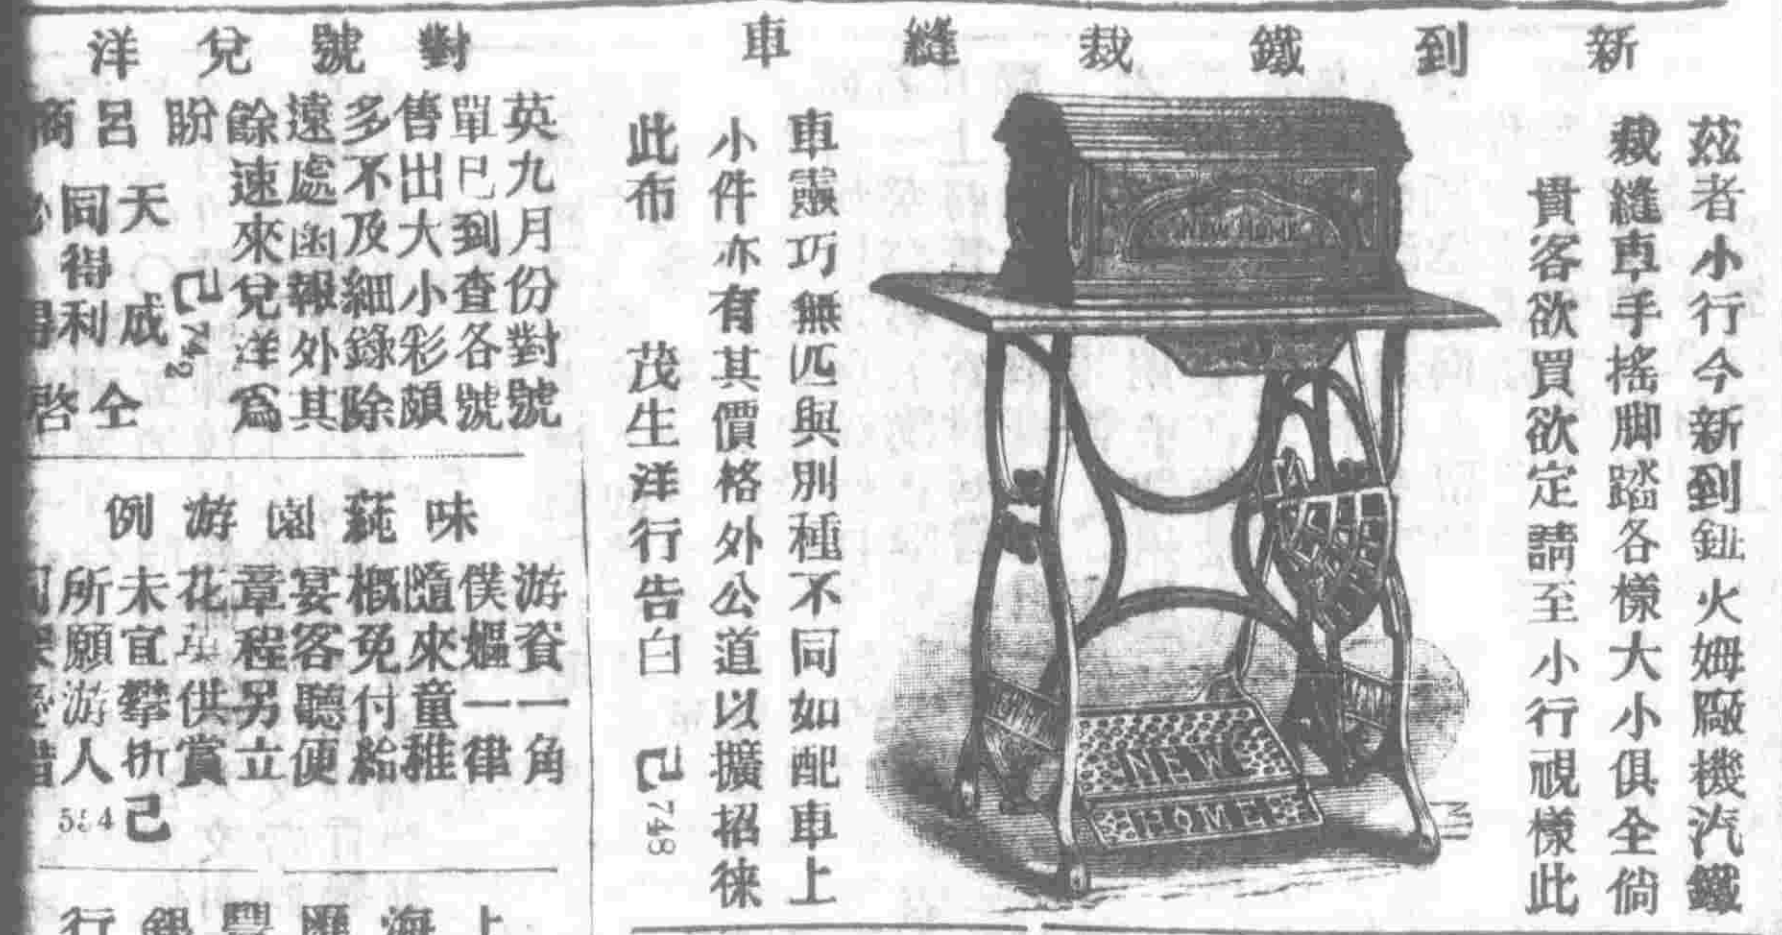 新到鐵裁縫車
茲者小行今新到鈕火姆廠機汽鐵
裁縫車手搖脚踏各樣大小俱全倘
貴客欲買欲定請至小行視樣此
NEW HOME
NEW
HOME
車靈巧無匹與別種不同如配車上
小件亦有其價格外公道以擴招徠
此布 茂生洋行告白 己748
對號兌洋
英九月份對號
單已到查各號
售出大小彩頗
多不及細錄除
遠處函報外其
餘速來兌洋爲
盼 己742
呂 天成
同得利 仝
啓
味蒓園游例
游資一角
僕嫗一律
隨來童稚
概免付給
宴客聽便
章程另立
花供賞
未宜攀折己
所願游人
上海匯豐銀行